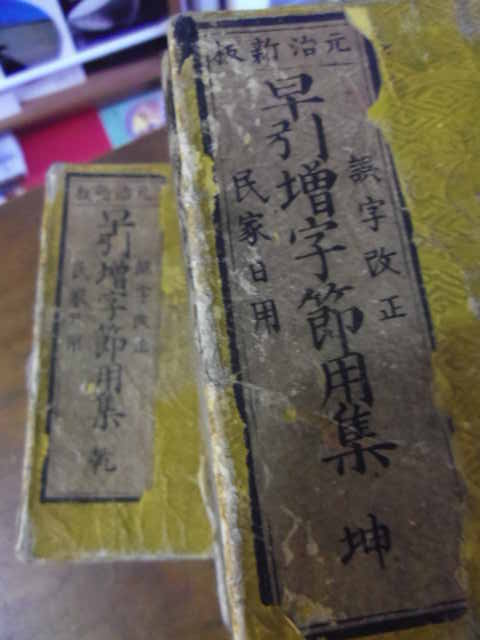 元治新板
誤字改正
早引増字節用集 坤
民家日用
元治新板
誤字改正
早引増字節用集 乾
民家日用